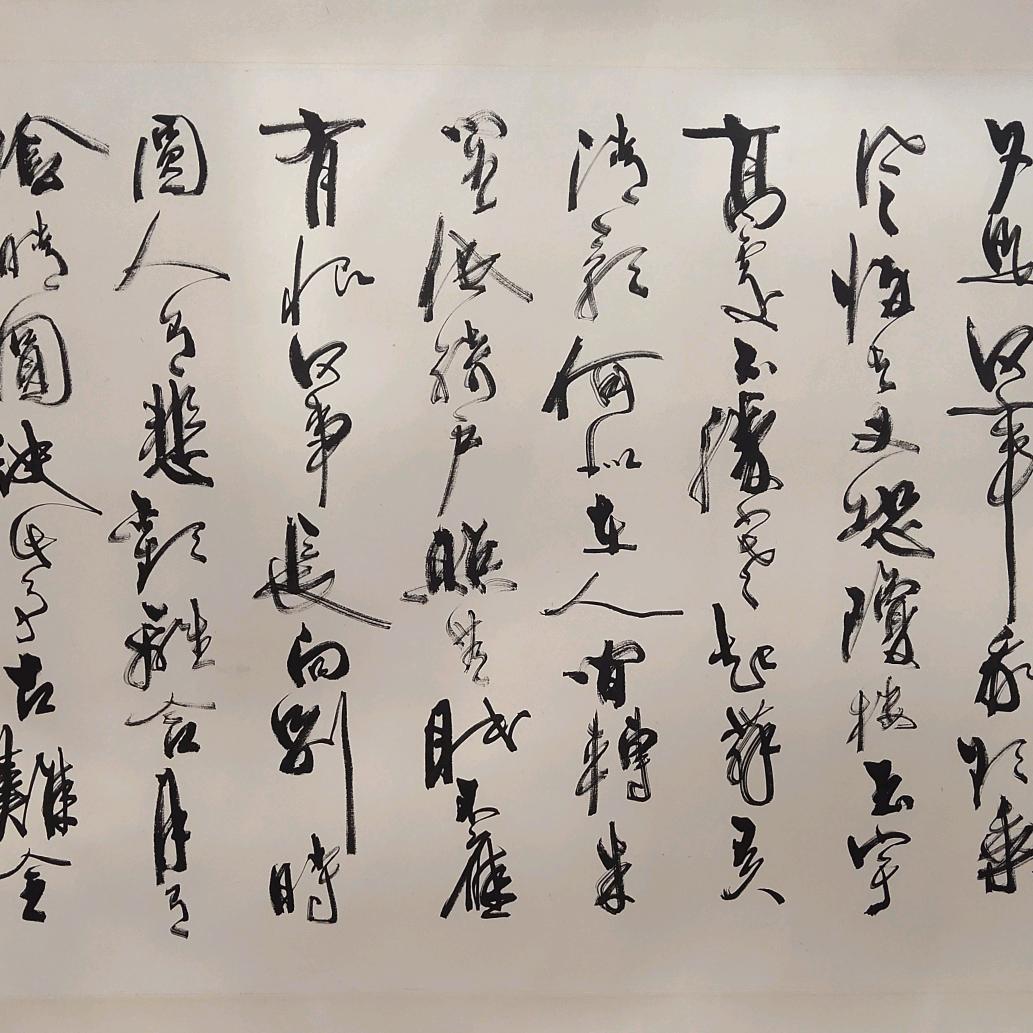 夕是何年我欲乘
風歸去又恐瓊樓玉宇
高處不勝寒起舞弄
清影何似在人間轉朱
閣低綺戶照無眠不應
有恨何事長向別時
圓人有悲歡離合月有
陰晴圓缺此事古難全